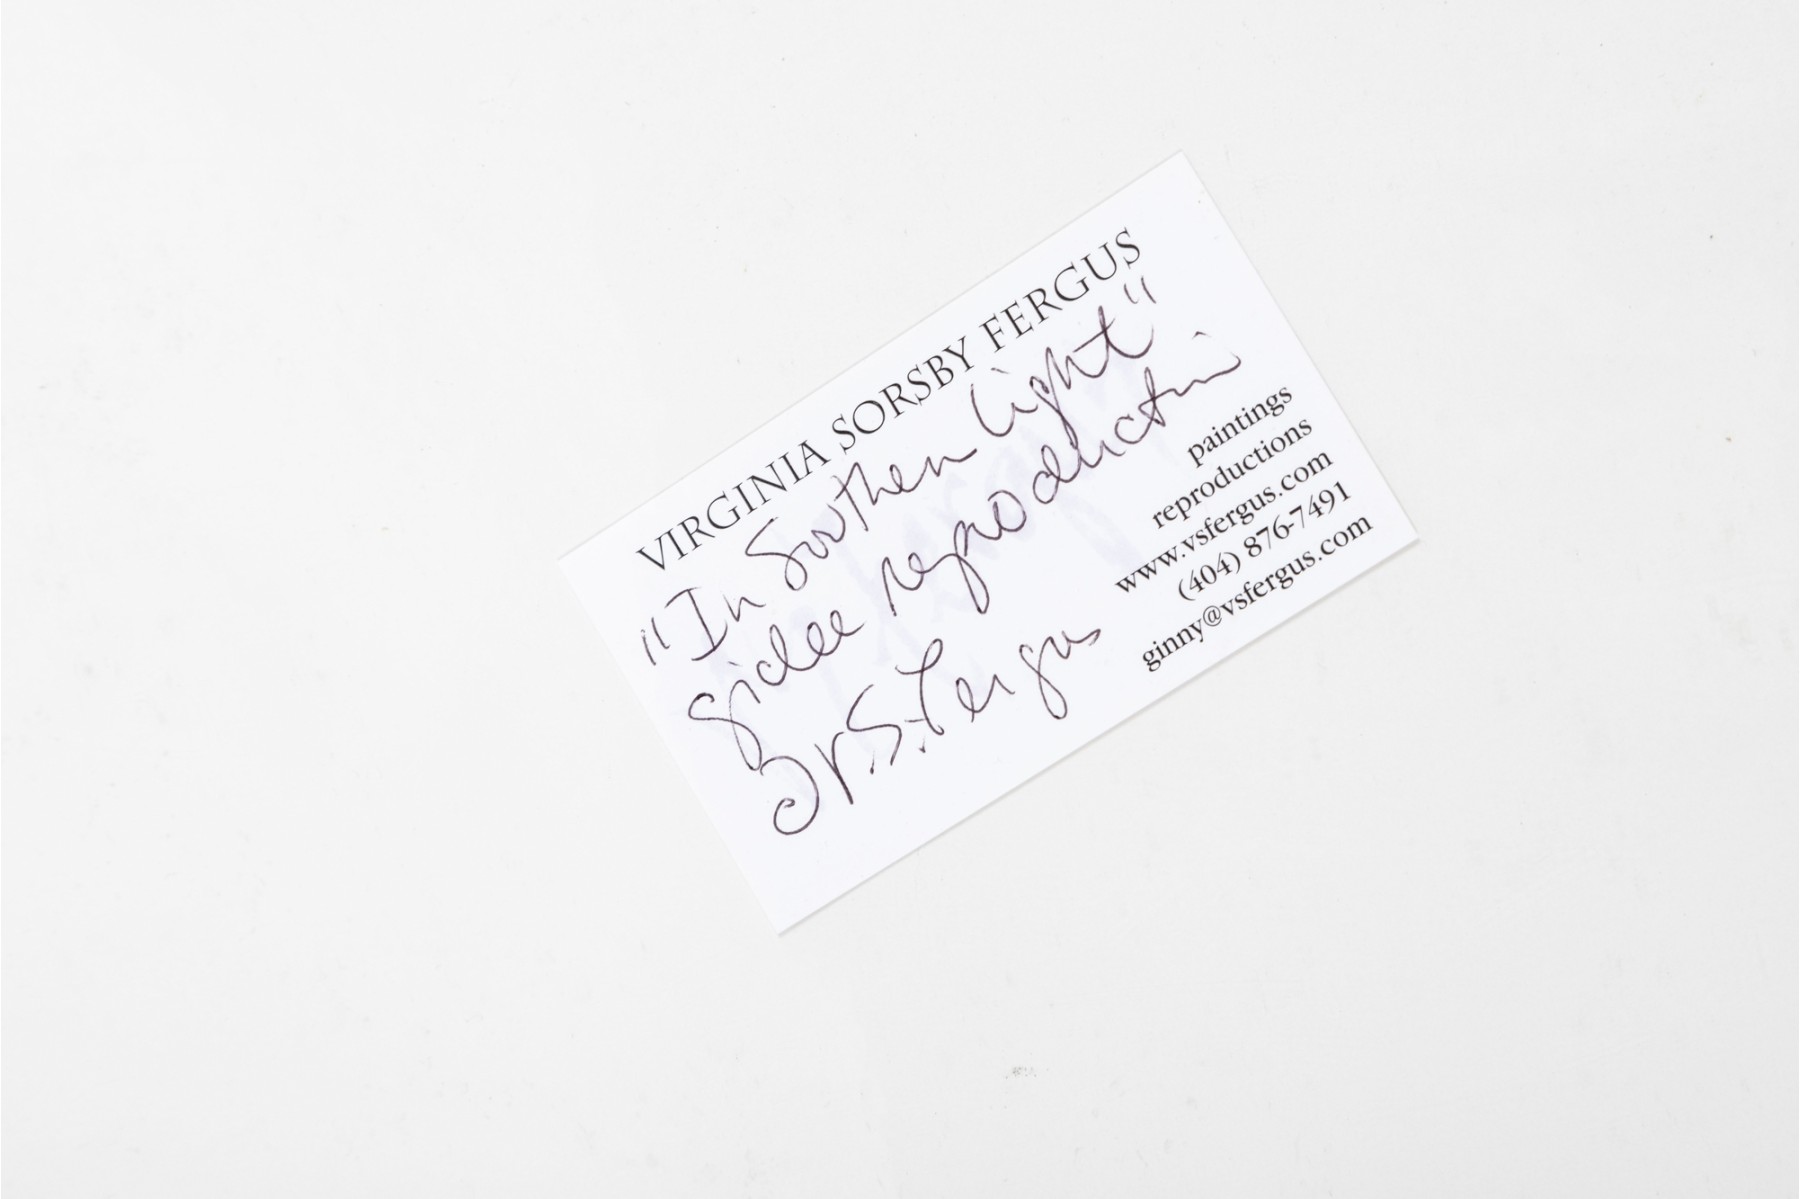 VIRGINIA SORSBY FERGUS
"In Southern Light"
giclee reproduction
V.S. Fergus
paintings
reproductions
www.vsfergus.com
(404) 876-7491
ginny@vsfergus.com